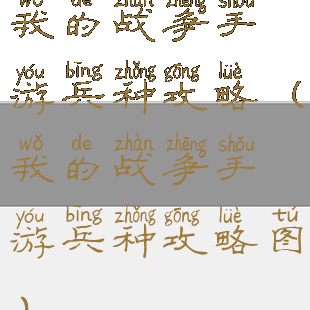 wǒ de zhàn zhēng shǒu
我的战争手
yóu bīng zhǒng gōng lüè
游兵种攻略（
wǒ de zhàn zhēng shǒu
我的战争手
yóu bīng zhǒng gōng lüè tú
游兵种攻略图
）